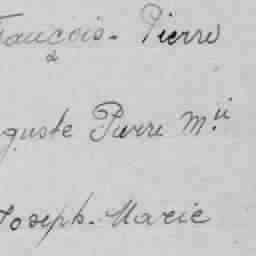 François-Pierre
a
guste Pierre M.ie
Joseph-Marie